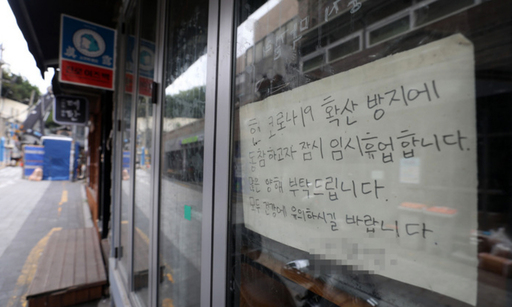 현 코로나19 확산 방지에
동참하고자 잠시 임시휴업합니다.
많은 양해 부탁드립니다.
모두 건강에 유의하시길 바랍니다.